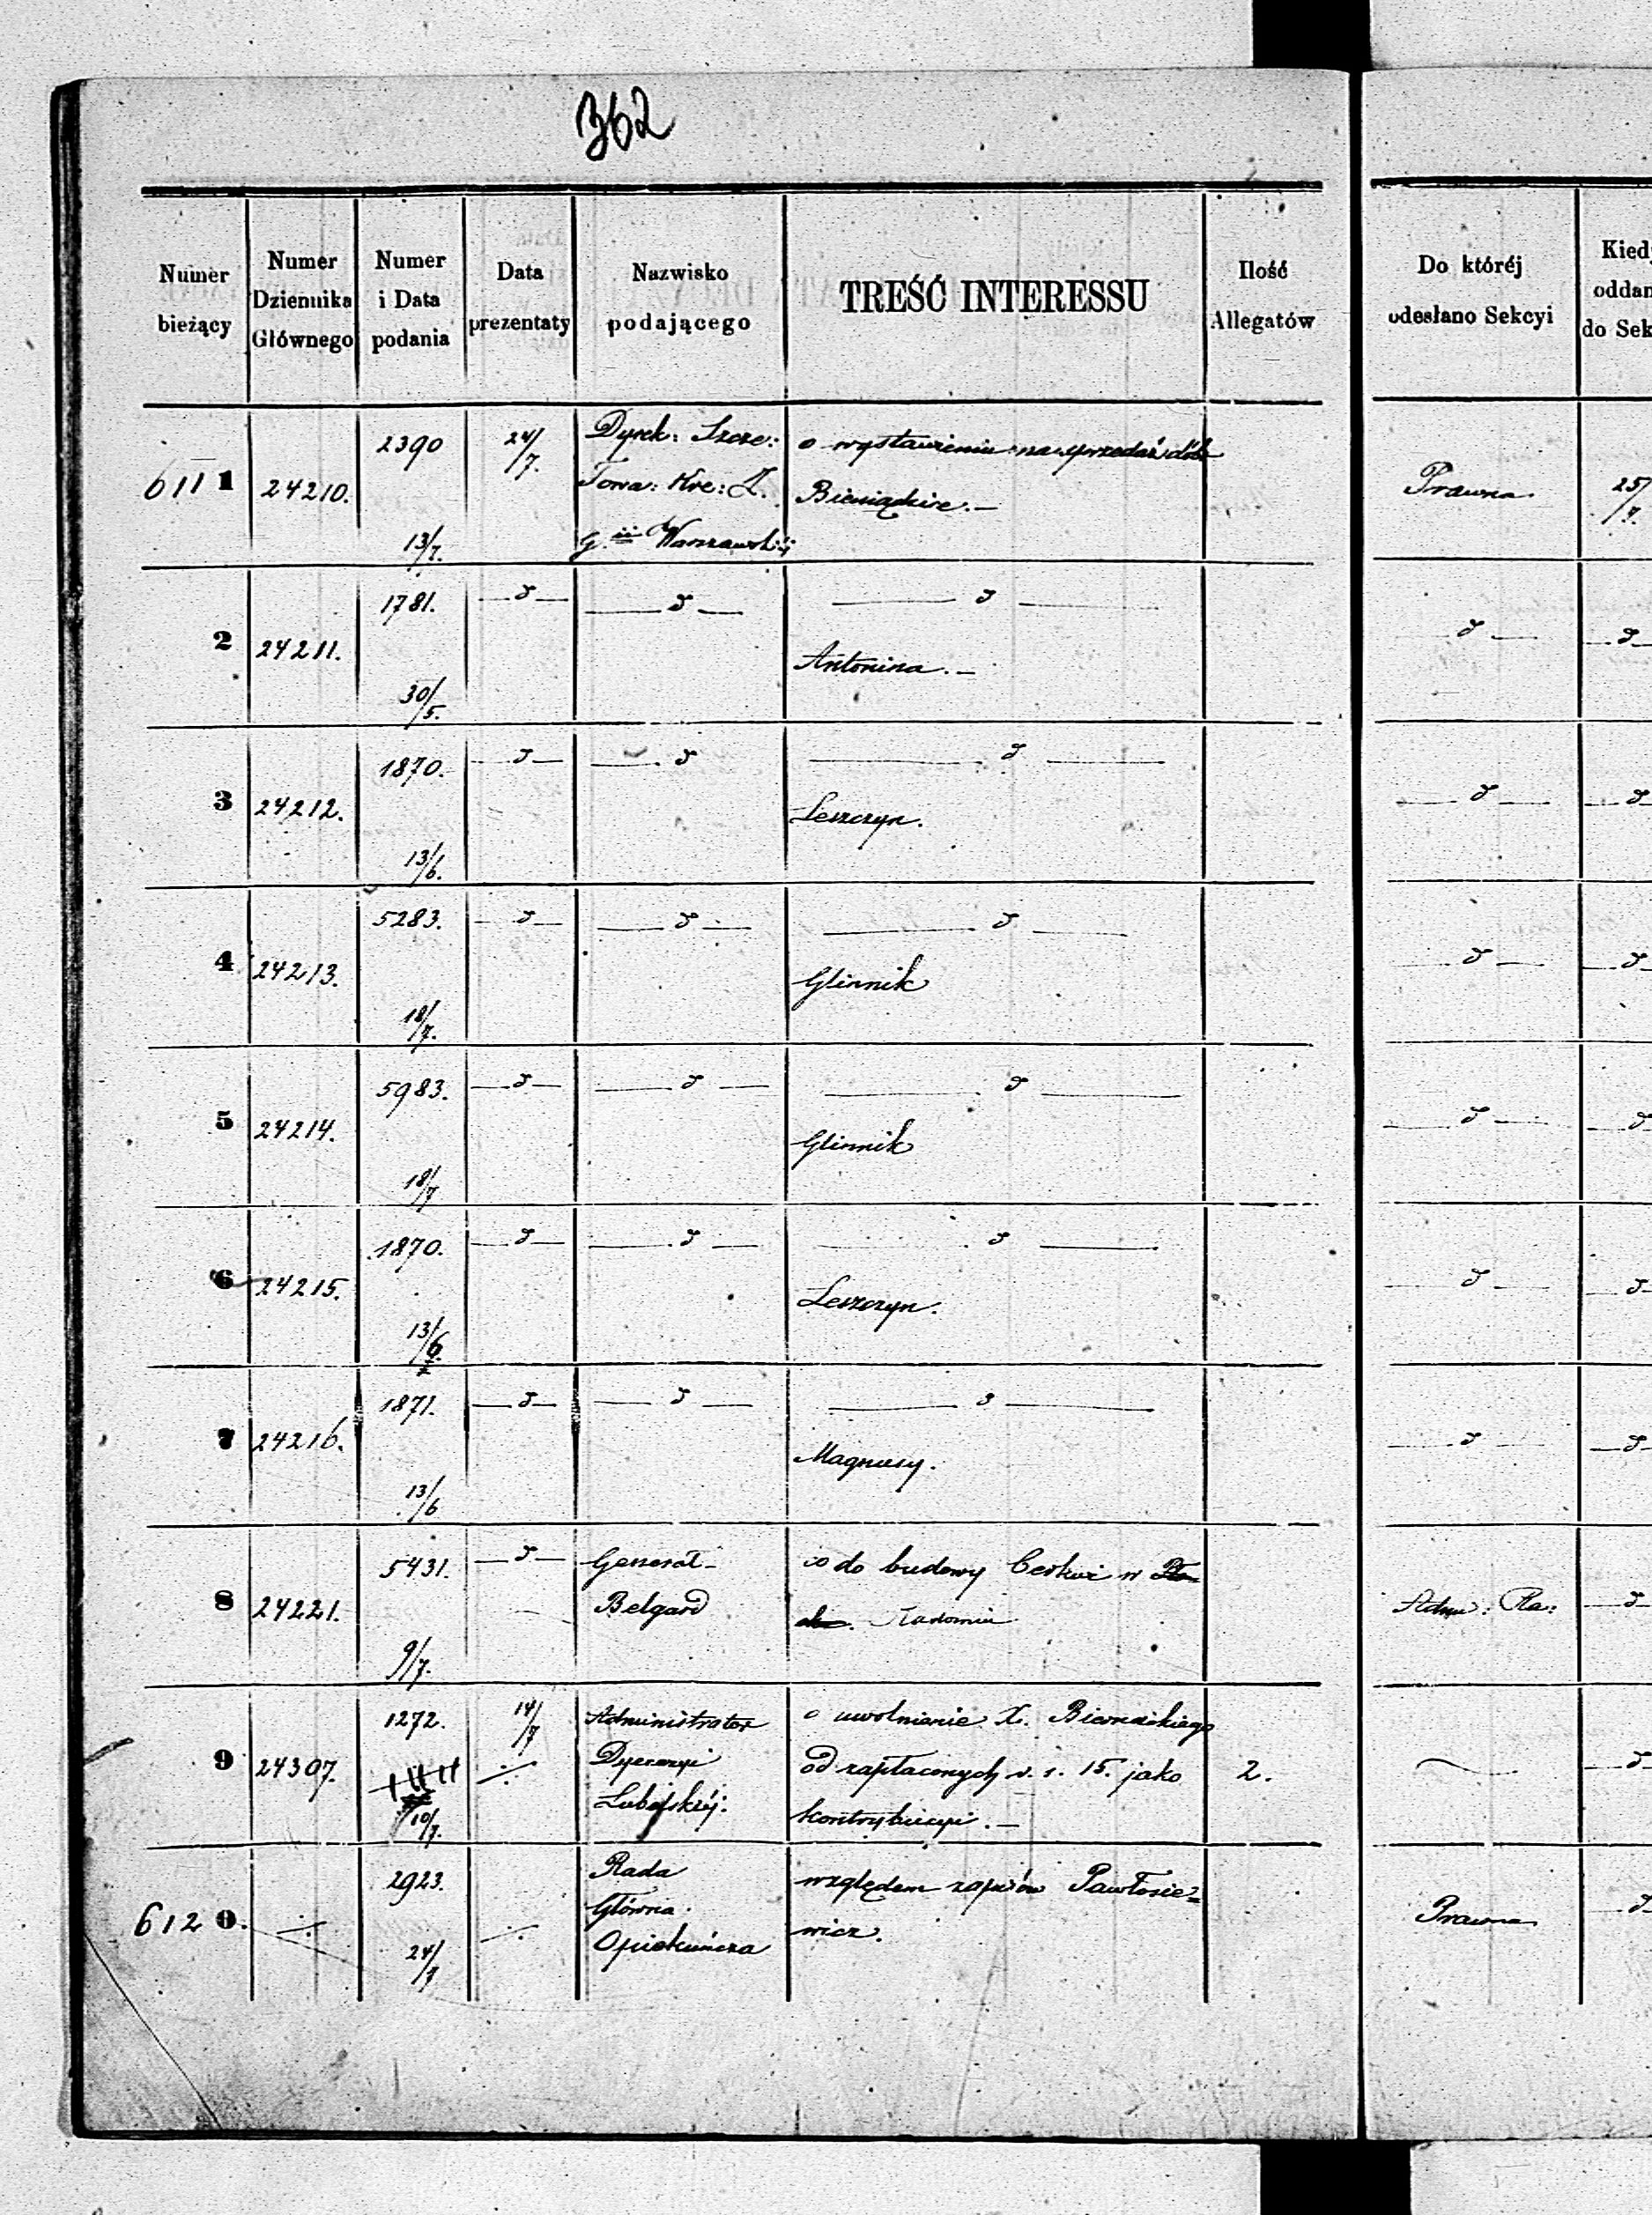 362
Numer bieżący
Numer Dziennika Głównego
Numer i Data podania
Data prezentaty
Nazwisko podającego
TREŚĆ INTERESSU
Ilość Allegatów
Do któréj odesłano Sekcyi
Kiedy
oddan
do Sek
6111 24210. 2390 13/7. 24/7. Dyrek: Szcze: Towa: Kre: Z. G.ii Warszawskiéj o wystawieniu na sprzedaż dóbr Bieniądzice.— Prawna 25/7.
2 24211. 1781. 30/5. —d— —d— —d— Antonina.— d— d—
3 24212. 1870. 13/6. —d— —d— —d— Leszczyn. —d— —d
4 24213. 5283. 18/7. —d— —d— —d— Glinnik —d— —d
5 24214. 5983. 18/7 —d— —d— —d— Glinnik —d— —d
6 24215. 1870. 13/6. —d— —d— —d— Leszczyn. —d— —d
7 24216. 1871. 13/6 —d— —d— —d— Magnusy. —d— —d
8 24221. 5431. 9/7. —d— Generał Belgard co do budowy Cerkwi w Radomiu Adm: Ra: —d
9 24307. 1272. 10/7. 14/7 Administrator Dyecezyi Lubelskiéj. o uwolnienie X. Biernackiego od zapłaconych r. s. 15. jako kontrybucyi.— 2. —d
6120. ÷ 2923. 24/7 ÷ Rada Główna Opiekuńcza względem zapisów Pawłosiewicz. Prawna —d